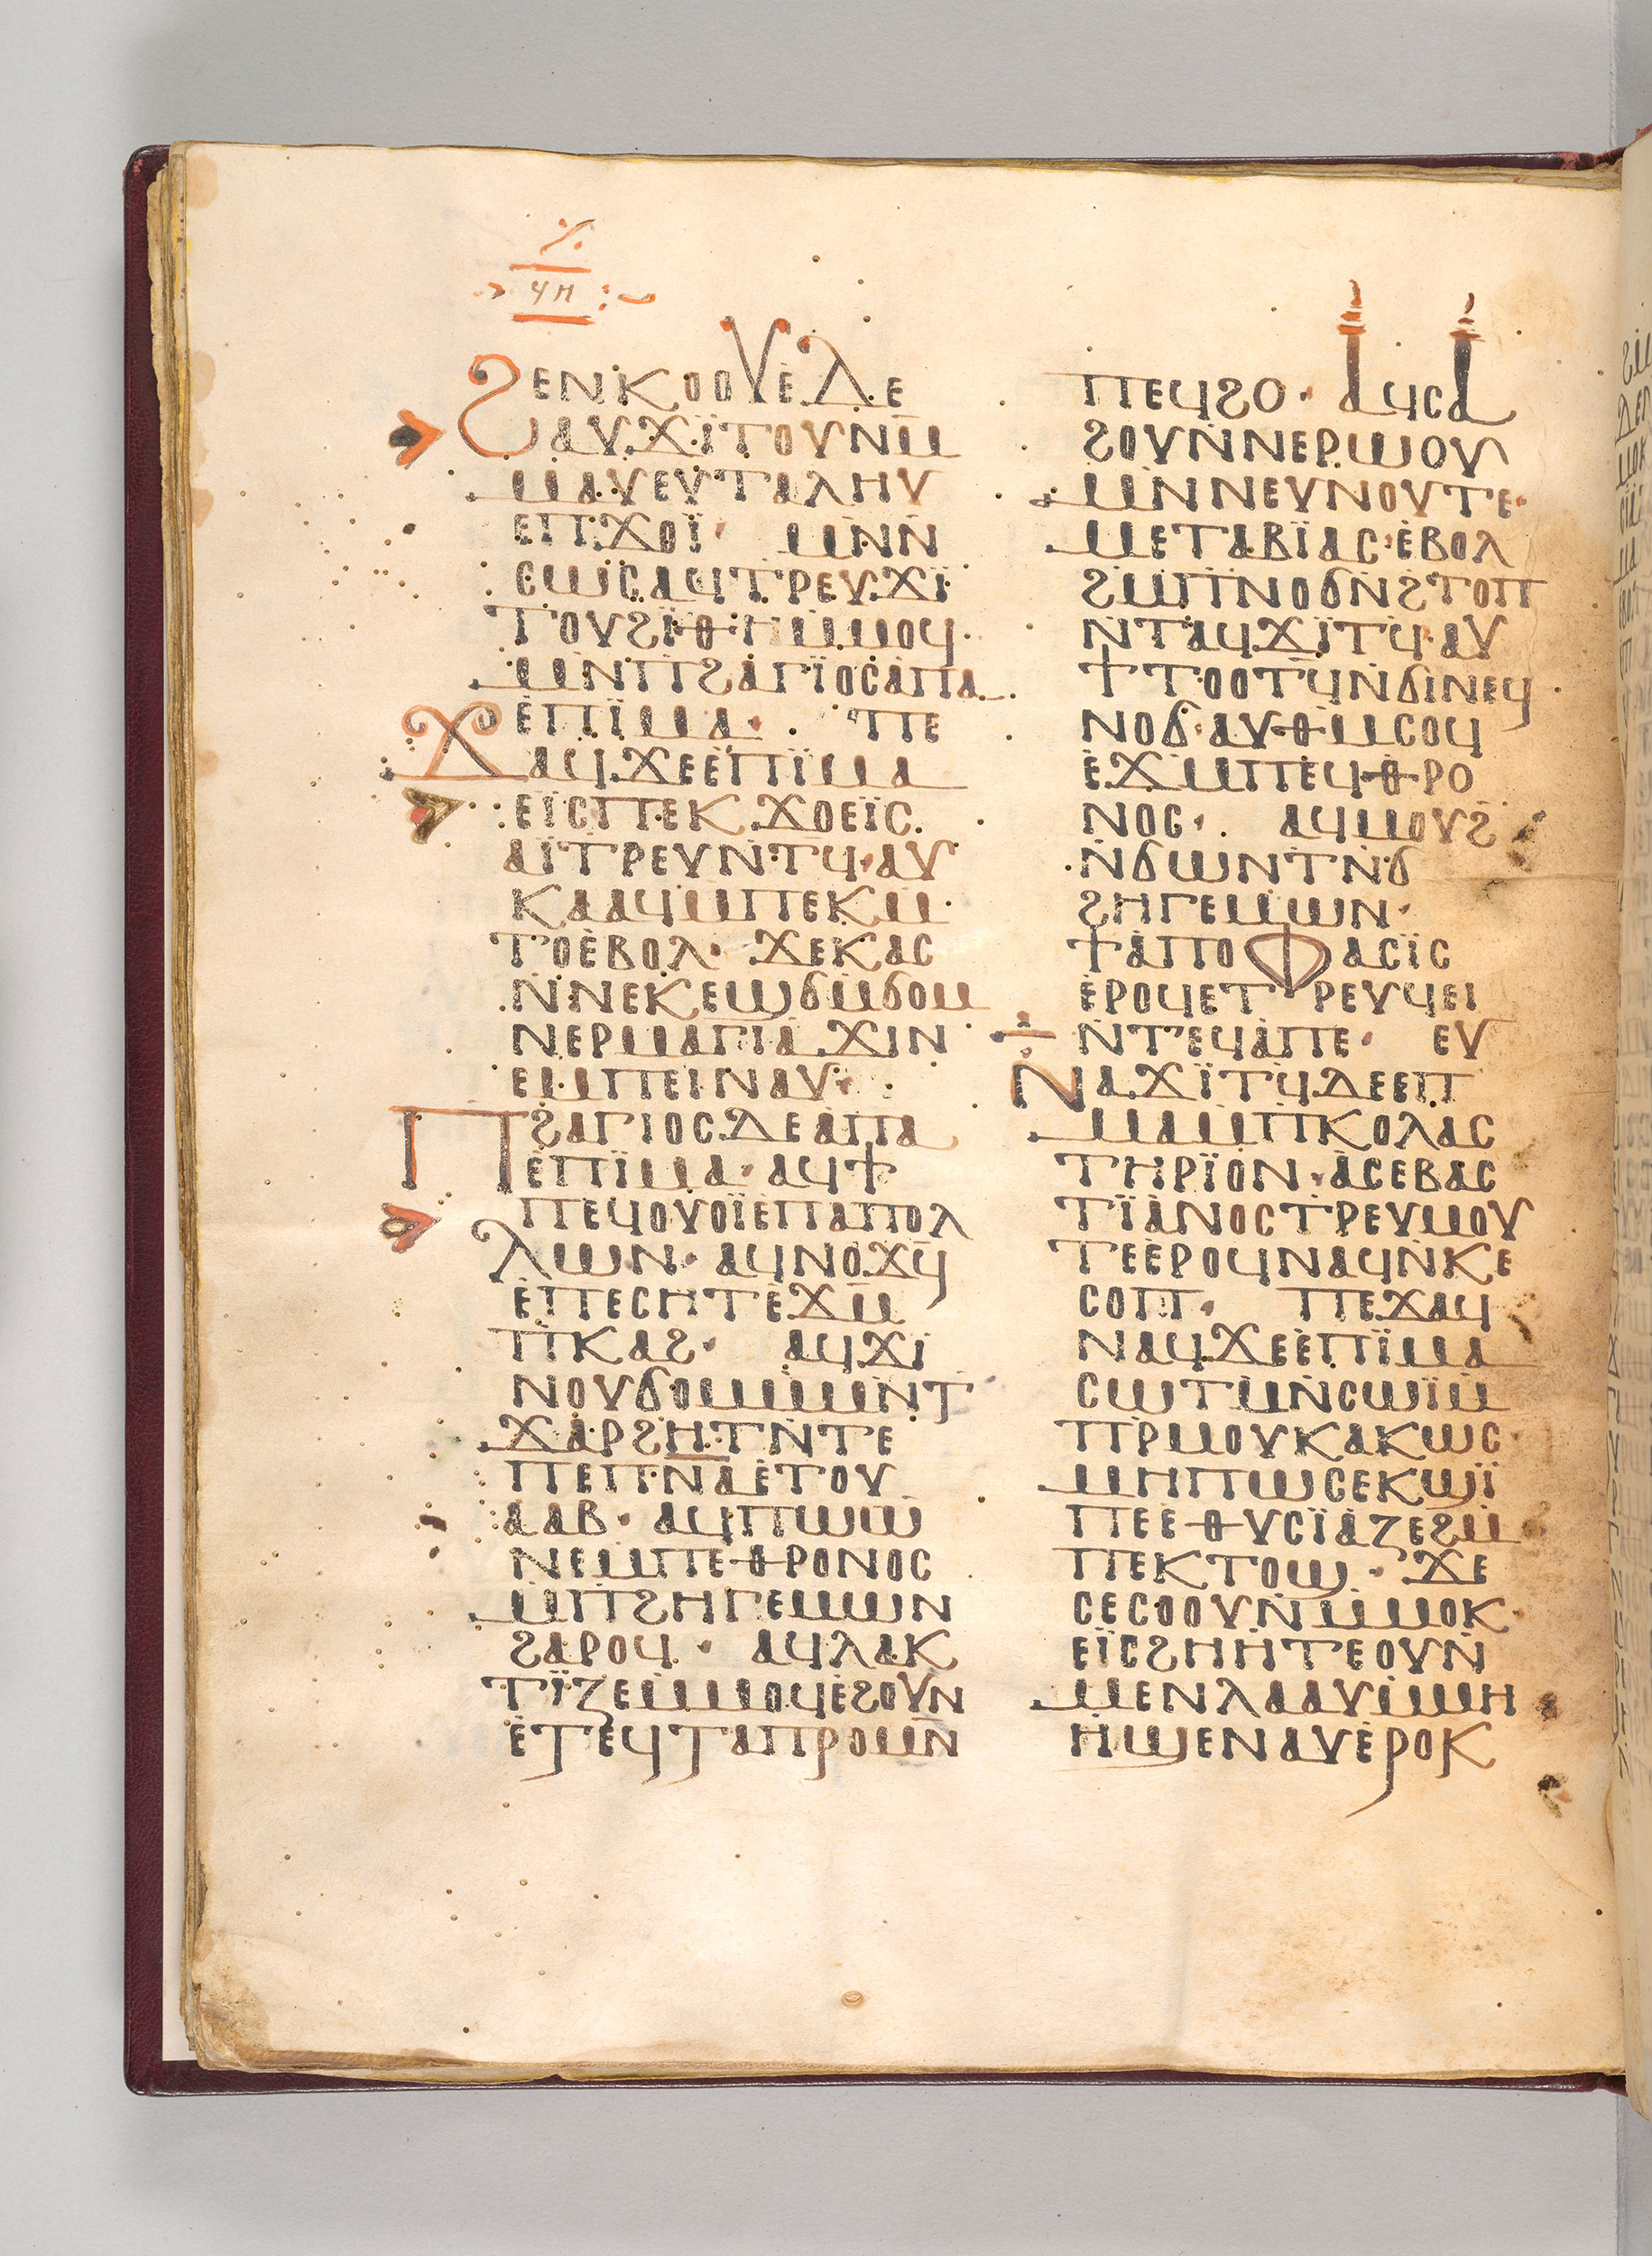 ϤⲎ
ϨⲈⲚⲔⲞⲞⲨⲈ̇ⲆⲈ
ⲀⲨϪⲒⲦⲞⲨⲚ̅Ⲙ
ⲘⲀⲨⲈⲨⲦⲀⲖⲎⲨ
ⲈⲠϪⲞⲒ̈· ⲘⲚⲚ̅
ⲤⲰⲒ̈ⲤⲀϤⲦⲢⲈⲨϪⲒ̈
ⲦⲞⲨϨⲒ̈ⲐⲎⲘ̇ⲘⲞϤ·
ⲘⲚ̇ⲠϨⲀⲄⲒ̈ⲞⲤⲀ̇ⲠⲀ
Ⲉ̇ⲠⲒ̈ⲘⲀ· ⲠⲈ
ϪⲀϤϪⲈⲈ̇ⲠⲒ̈ⲘⲀ
ⲈⲒ̈ⲤⲠⲈⲔϪⲞⲈⲒ̈Ⲥ
ⲀⲒ̈ⲦⲢⲈⲨⲚ̇ⲦϤ·ⲀⲨ
ⲔⲀⲀϤⲘ̇ⲠⲈⲔⲘ̇
ⲦⲞⲈ̇ⲂⲞⲖ· ϪⲈⲔⲀⲤ
Ⲛ̇ⲚⲈⲔⲈϢϬⲘ̇ϬⲞⲘ
ⲚⲈⲢⲘⲀⲄⲒⲀϪⲒⲚ
ⲈⲘ̇ⲠⲈⲒⲚⲀⲨ·
ⲠϨⲀⲄⲒⲞⲤⲆⲈⲀ̇ⲠⲀ
Ⲉ̇ⲠⲒ̈ⲘⲀ·ⲀϤϮ
ⲠⲈϤⲞⲨⲞⲒ̈Ⲉ̇ⲠⲀⲠⲞⲖ
ⲖⲰⲚ· ⲀϤⲚⲞϪϤ̅
Ⲉ̇ⲠⲈⲤⲎⲦⲈ̇ϪⲘ
ⲠⲔⲀϨ· ⲀϤϪⲒ
ⲚⲞⲨϬⲞⲘⲘ̇ⲘⲚ̇Ⲧ
ϪⲀⲢϨⲎⲦⲚ̇ⲦⲈ
ⲠⲈⲠⲚ̅ⲀⲈ̇ⲦⲞⲨ
ⲀⲀⲂ· ⲀϤⲠⲰⲰ
ⲚⲈⲘ̇ⲠⲈⲐⲢⲞⲚⲞⲤ
Ⲙ̇ⲠϨⲎⲄⲈⲘⲰⲚ
ϨⲀⲢⲞϤ· ⲀϤⲖⲀⲔ
ⲦⲒ̈ⲌⲈⲘ̇ⲘⲞϤⲈ̇ϨⲞⲨⲚ
Ⲉ̇ⲦⲈϤⲦⲀⲠⲢⲞⲘⲚ̅
ⲠⲈϤϨⲞ· ⲀϤⲤⲀ
ϨⲞⲨⲚ̇ⲚⲈⲢⲰⲞⲨ
ⲘⲚ̇ⲚⲈⲨⲚⲞⲨⲦⲈ·
ⲘⲈⲦⲀⲂⲒ̈ⲀⲤ·Ⲉ̇ⲂⲞⲖ
ϨⲘ̇ⲠⲚⲞϬⲚ̇ϨⲦⲞⲠ
Ⲛ̇ⲦⲀϤϪⲒ̈ⲦϤ̇·ⲀⲨ
ϮⲦⲞⲞⲦϤⲚ̇ϬⲒⲚⲈϤ
ⲚⲞϬ·ⲀⲨⲐⲘⲤⲞϤ
Ⲉ̇ϪⲘ̇ⲠⲈϤⲐⲢⲞ
ⲚⲞⲤ· ⲀϤⲘⲞⲨϨ
Ⲛ̇ϬⲰⲚⲦⲚ̇Ϭ
ϨⲎⲄⲈⲘⲰⲚ·
ϮⲀ̇ⲠⲞⲪⲀⲤⲒ̈Ⲥ
Ⲉ̇ⲢⲞϤⲈⲦⲢⲈⲨϤⲈⲒ
Ⲛ̇ⲦⲈϤⲀ̇ⲠⲈ· ⲈⲨ
ⲚⲀϪⲒ̈ⲦϤⲆⲈⲈⲠ
ⲘⲀⲘ̇ⲠⲔⲞⲖⲀⲤ
ⲦⲎⲢⲒ̈ⲞⲚ·Ⲁ̇ⲤⲈⲂⲀⲤ
ⲦⲒ̈ⲀⲚⲞⲤⲦⲢⲈⲨⲘⲞⲨ
ⲦⲈⲈ̇ⲢⲞϤⲚⲀϤⲚ̇ⲔⲈ
ⲤⲞⲠ· ⲠⲈϪⲀϤ
ⲚⲀϤϪⲈⲈ̇ⲠⲒ̈ⲘⲀ
ⲤⲰⲦⲘ̇Ⲛ̇ⲤⲰⲒ̈Ⲙ̇
ⲠⲢⲘⲞⲨⲔⲀⲔⲰⲤ·
ⲘⲎⲠⲰⲤⲈⲔϢⲒ̈
ⲠⲈⲈⲐⲨⲤⲒ̈ⲀⲌⲈϨⲘ̇
ⲠⲈⲔⲦⲞϢ· ϪⲈ
ⲤⲈⲤⲞⲞⲨⲚ̇ⲘⲘⲞⲔ·
ⲈⲒ̈ⲤϨⲎⲎ̇ⲦⲈⲞⲨⲚ̇
ⲘⲈⲚⲖⲀⲀⲨⲘ̇ⲘⲎ
Ⲏ̇ϢⲈⲚⲀⲨⲈ̇ⲢⲞⲔ